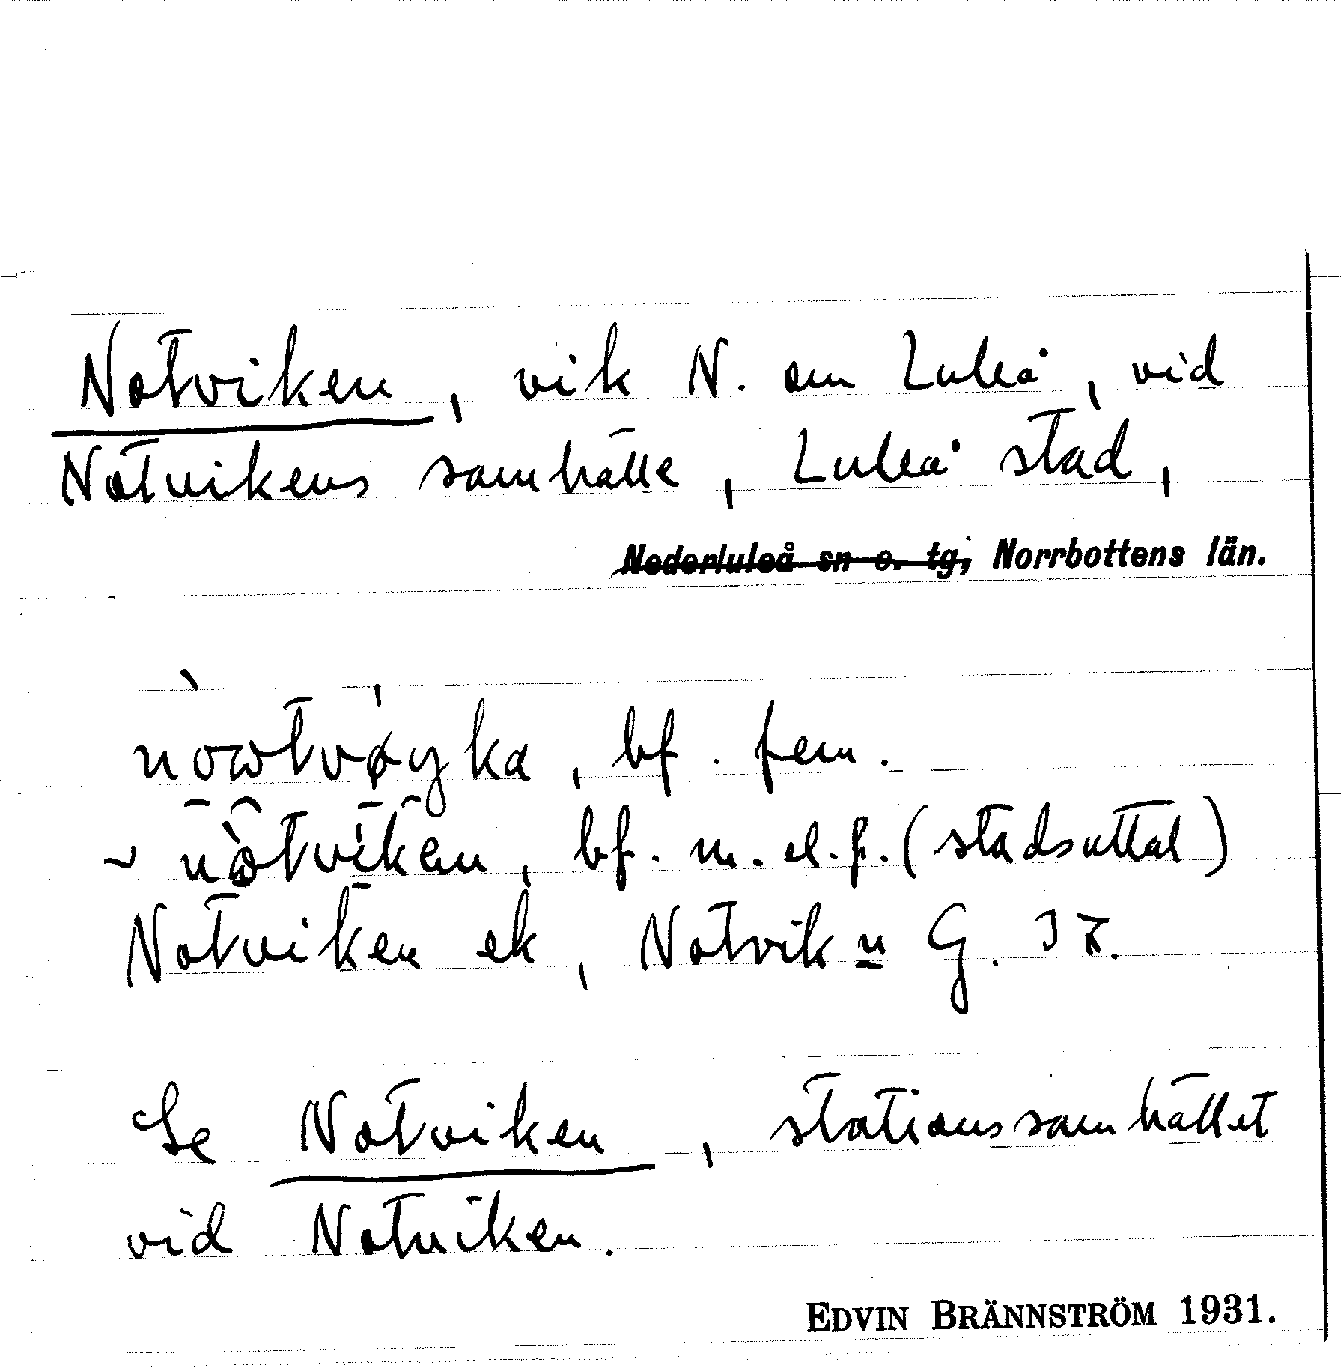 Notviken, vik N. om Luleå, vid
Notvikens samhälle, Luleå stad,
Nederluleå sn o. tg, Norrbottens län.
nòwtvøyka, bf. fem.
~ nòtviken, bf. m. el. f. (stadsuttal)
Notviken ek, Notvikn G.
Se Notviken, stationssamhället
vid Notviken.
EDVIN BRÄNNSTRÖM 1931.